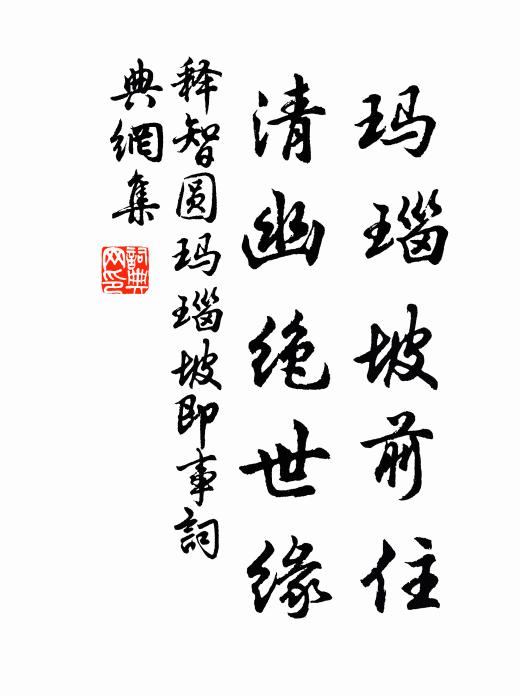 玛瑙坡前住
清幽绝世缘
释智圆玛瑙坡即事詞
典網集
詞典网印